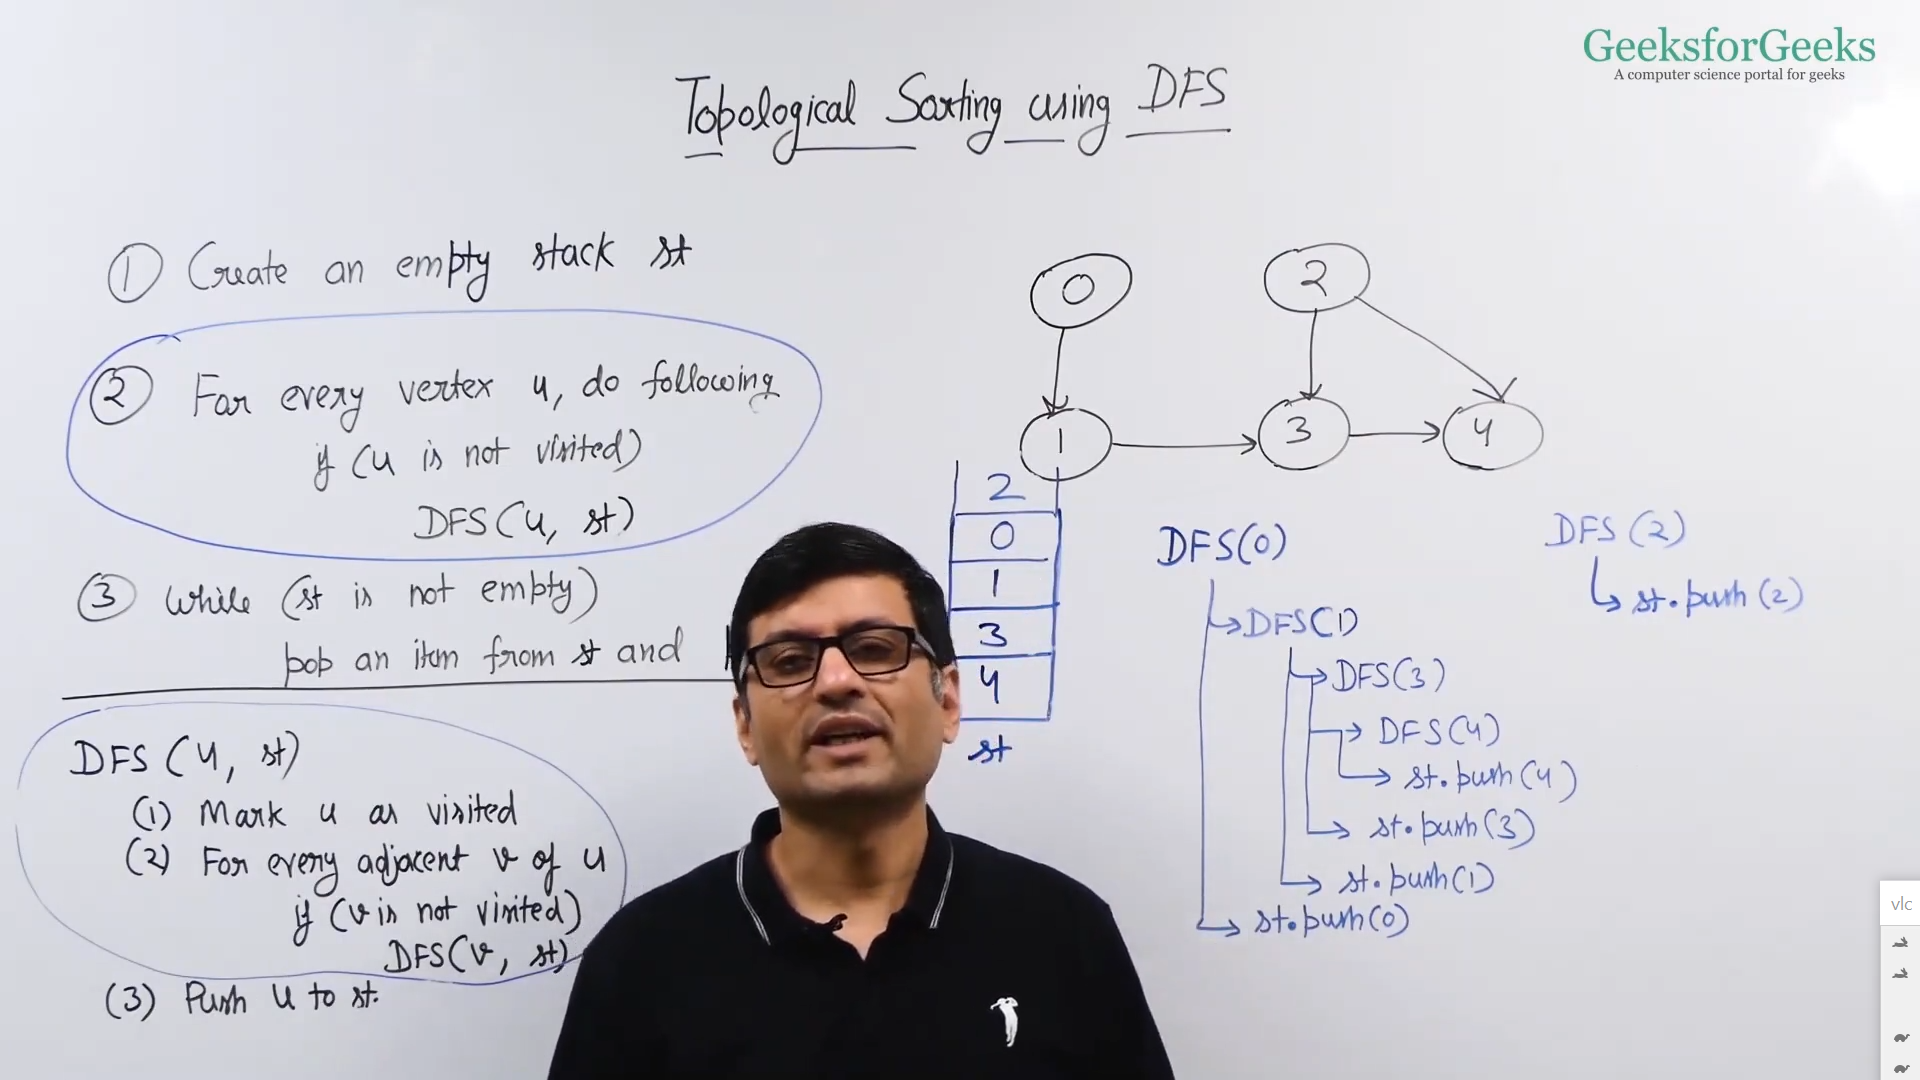 GeeksforGeeks
A computer science portal for geeks
Topological Sorting using DFS
① Create an empty stack st
② For every vertex u, do following
if (u is not visited)
DFS(u, st)
③ While (st is not empty)
pop an item from st and
DFS (u, st)
(1) Mark u as visited
(2) For every adjacent v of u
if (v is not visited)
DFS(v, st)
(3) Push u to st.
0
2
1
3
4
2
0
1
3
4
st
DFS(0)
DFS(1)
DFS(3)
DFS(4)
st.push(4)
st.push(3)
st.push(1)
st.push(0)
DFS(2)
st.push(2)
vlc